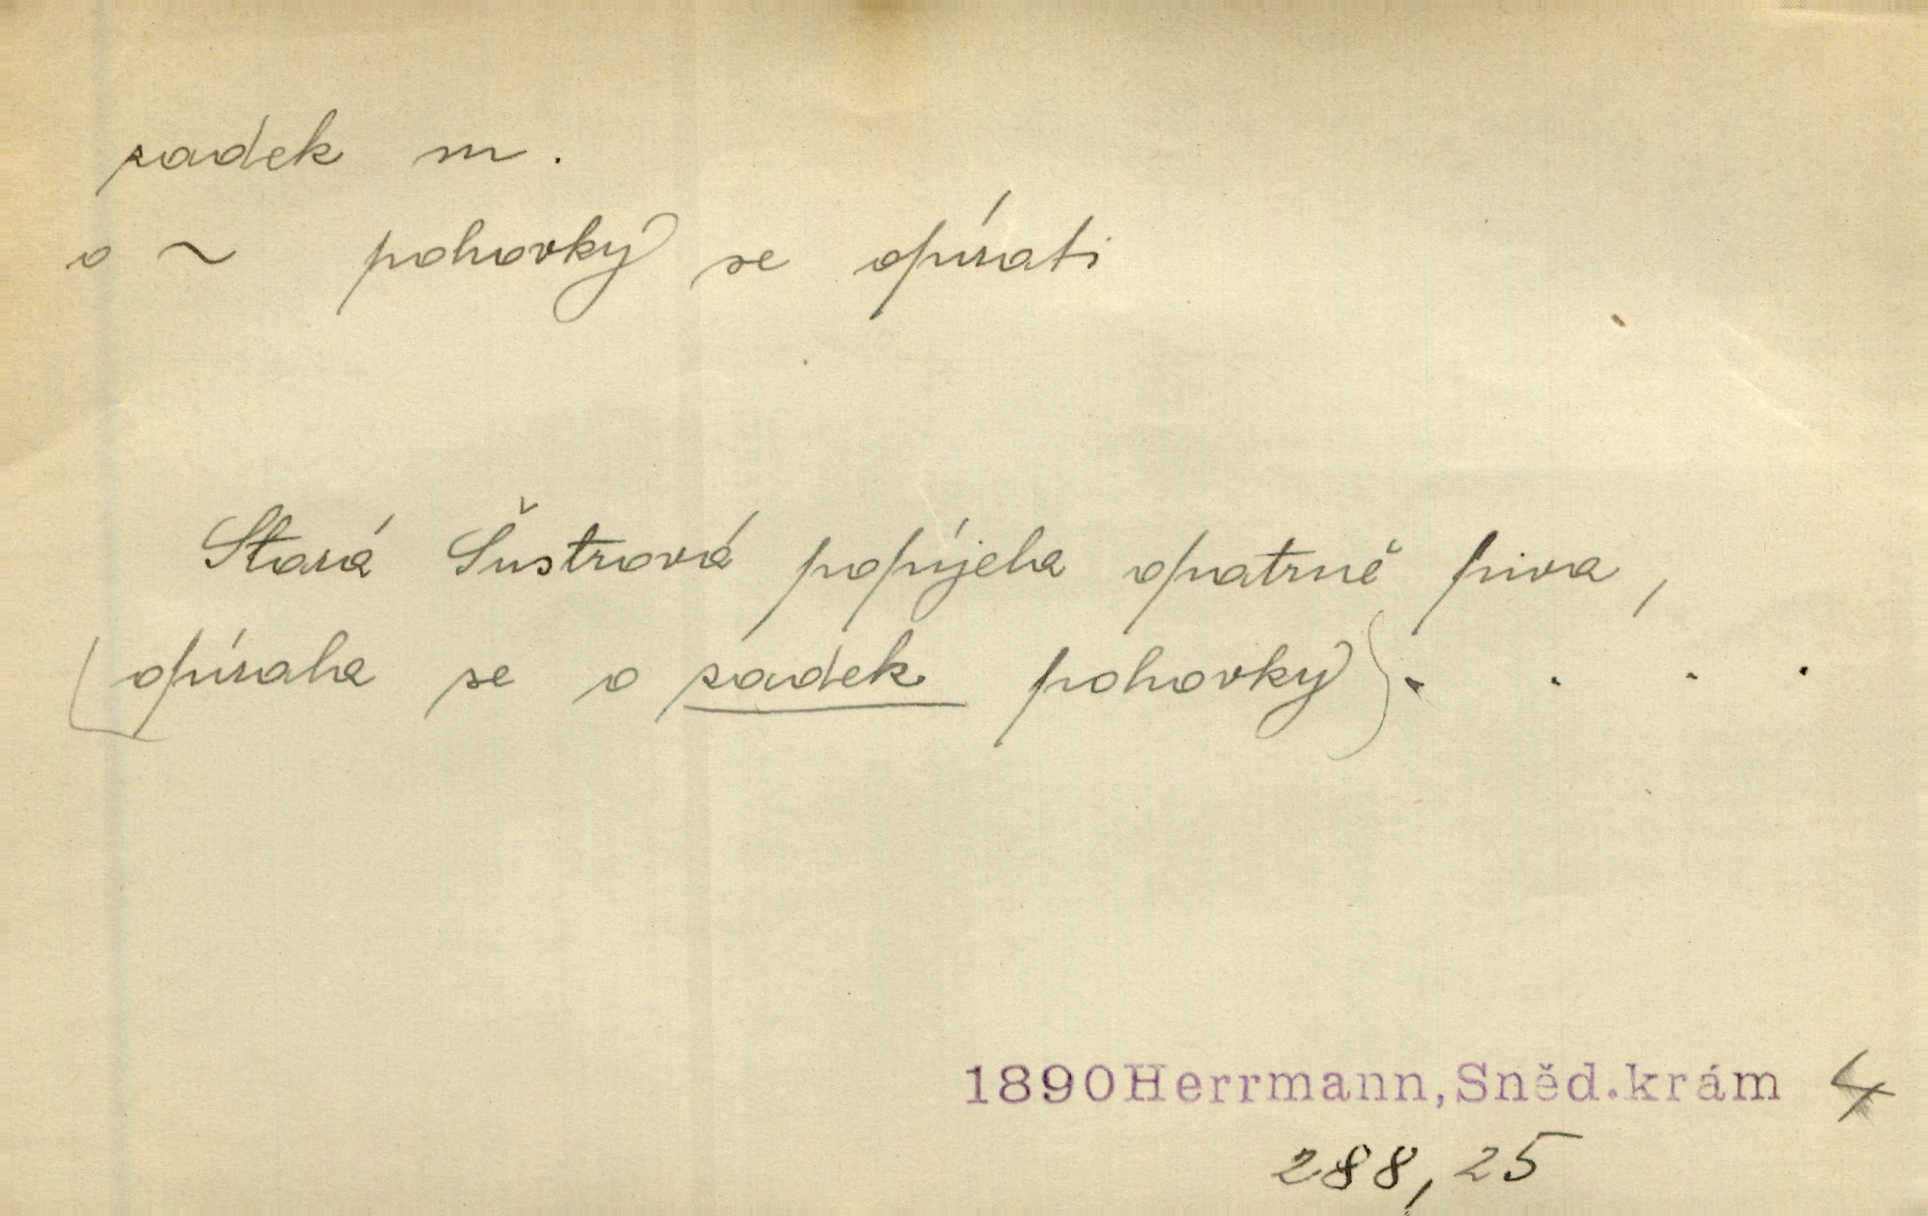 zadek m.
o ~ pohovky se opírati
Stará Šustrová popíjela opatrně piva,
[opírala se o zadek pohovky). . . .
1890Herrmann,Sněd.krám 4
288,25